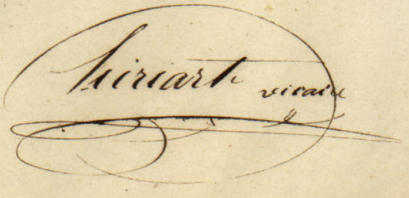 hiriart vicaire